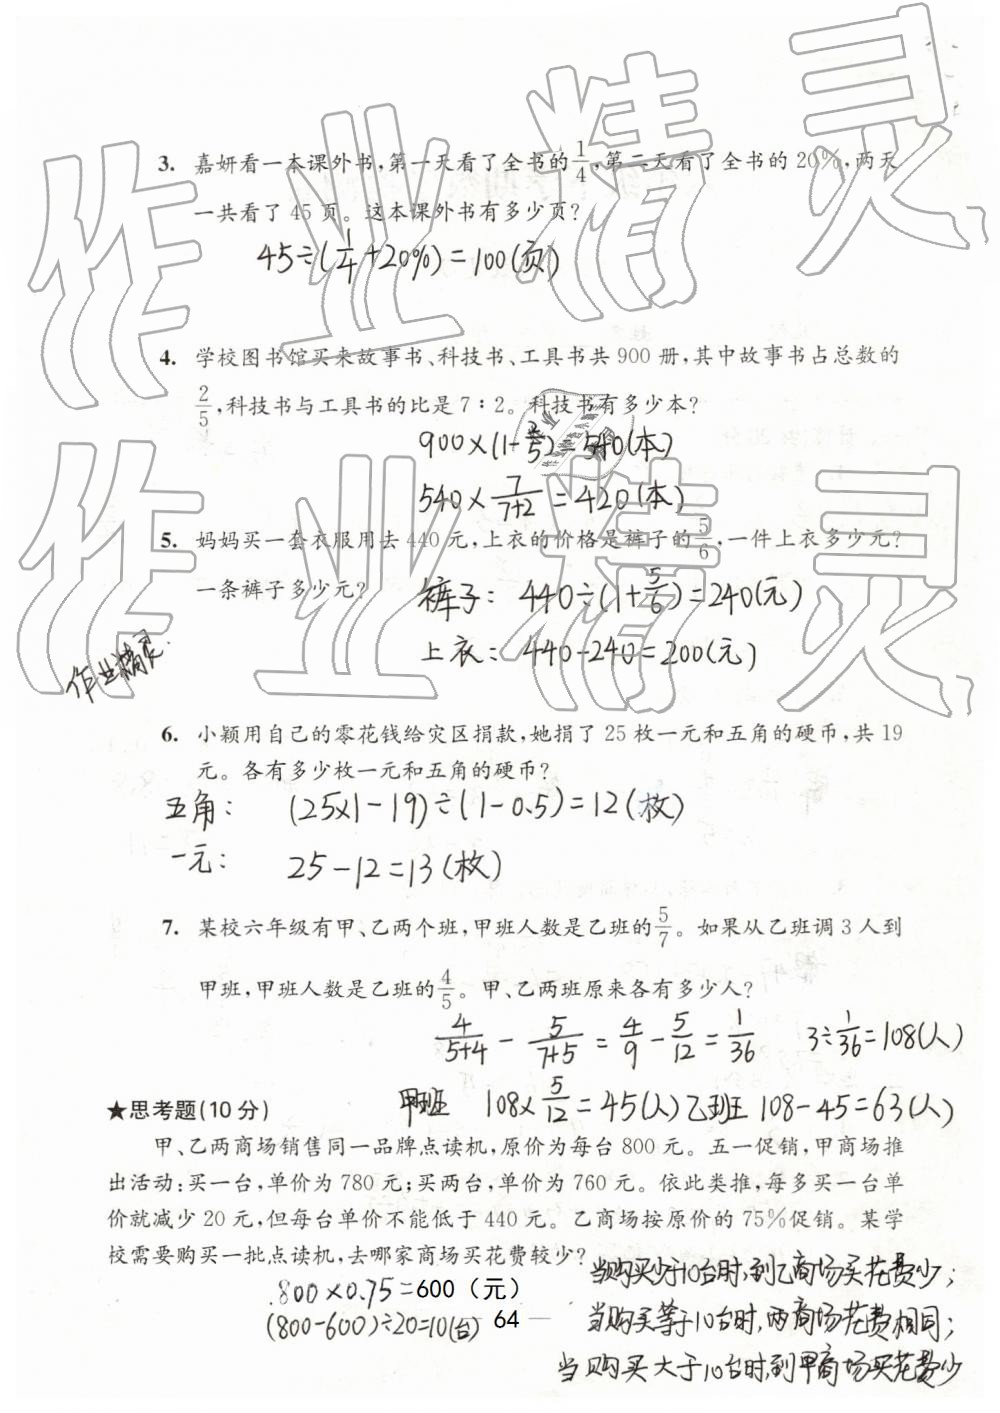 3. 嘉妍看一本课外书,第一天看了全书的1/4,第二天看了全书的20%,两天
一共看了45页。这本课外书有多少页?
45÷(1/4+20%)=100(页)
4. 学校图书馆买来故事书、科技书、工具书共900册,其中故事书占总数的
2/5,科技书与工具书的比是7:2。科技书有多少本?
900×(1-2/5)=540(本)
540×7/(7+2)=420(本)
5. 妈妈买一套衣服用去440元,上衣的价格是裤子的5/6,一件上衣多少元?
一条裤子多少元?
裤子: 440÷(1+5/6)=240(元)
上衣: 440-240=200(元)
作业精灵
6. 小颖用自己的零花钱给灾区捐款,她捐了25枚一元和五角的硬币,共19
元。各有多少枚一元和五角的硬币?
五角: (25×1-19)÷(1-0.5)=12(枚)
一元: 25-12=13(枚)
7. 某校六年级有甲、乙两个班,甲班人数是乙班的5/7。如果从乙班调3人到
甲班,甲班人数是乙班的4/5。甲、乙两班原来各有多少人?
4/(5+4)-5/(7+5)=4/9-5/12=1/36 3÷1/36=108(人)
甲班 108×5/12=45(人) 乙班 108-45=63(人)
★思考题(10分)
甲、乙两商场销售同一品牌点读机,原价为每台800元。五一促销,甲商场推
出活动:买一台,单价为780元;买两台,单价为760元。依此类推,每多买一台单
价就减少20元,但每台单价不能低于440元。乙商场按原价的75%促销。某学
校需要购买一批点读机,去哪家商场买花费较少?
800×0.75=600(元)
(800-600)÷20=10(台)
当购买少于10台时,到乙商场买花费少;
当购买等于10台时,两商场花费相同;
当购买大于10台时,到甲商场买花费少
64
作业精灵
作业精灵